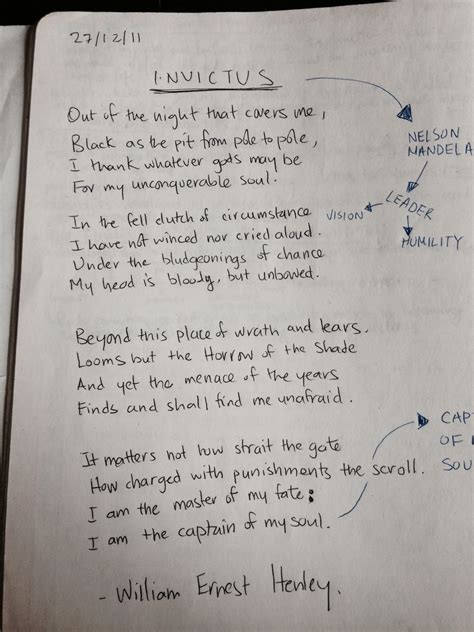 27/12/11
INVICTUS
Out of the night that covers me,
Black as the pit from pole to pole,
I thank whatever gods may be
For my unconquerable soul.
In the fell clutch of circumstance
I have not winced nor cried aloud.
Under the bludgeonings of chance
My head is bloody, but unbowed.
Beyond this place of wrath and tears.
Looms but the Horrow of the Shade
And yet the menace of the years
Finds and shall find me unafraid.
It matters not how strait the gate
How charged with punishments the scroll.
I am the master of my fate:
I am the captain of my soul.
- William Ernest Henley.
NELSON
MANDELA
LEADER
VISION
HUMILITY
CAPT
OF
SOU